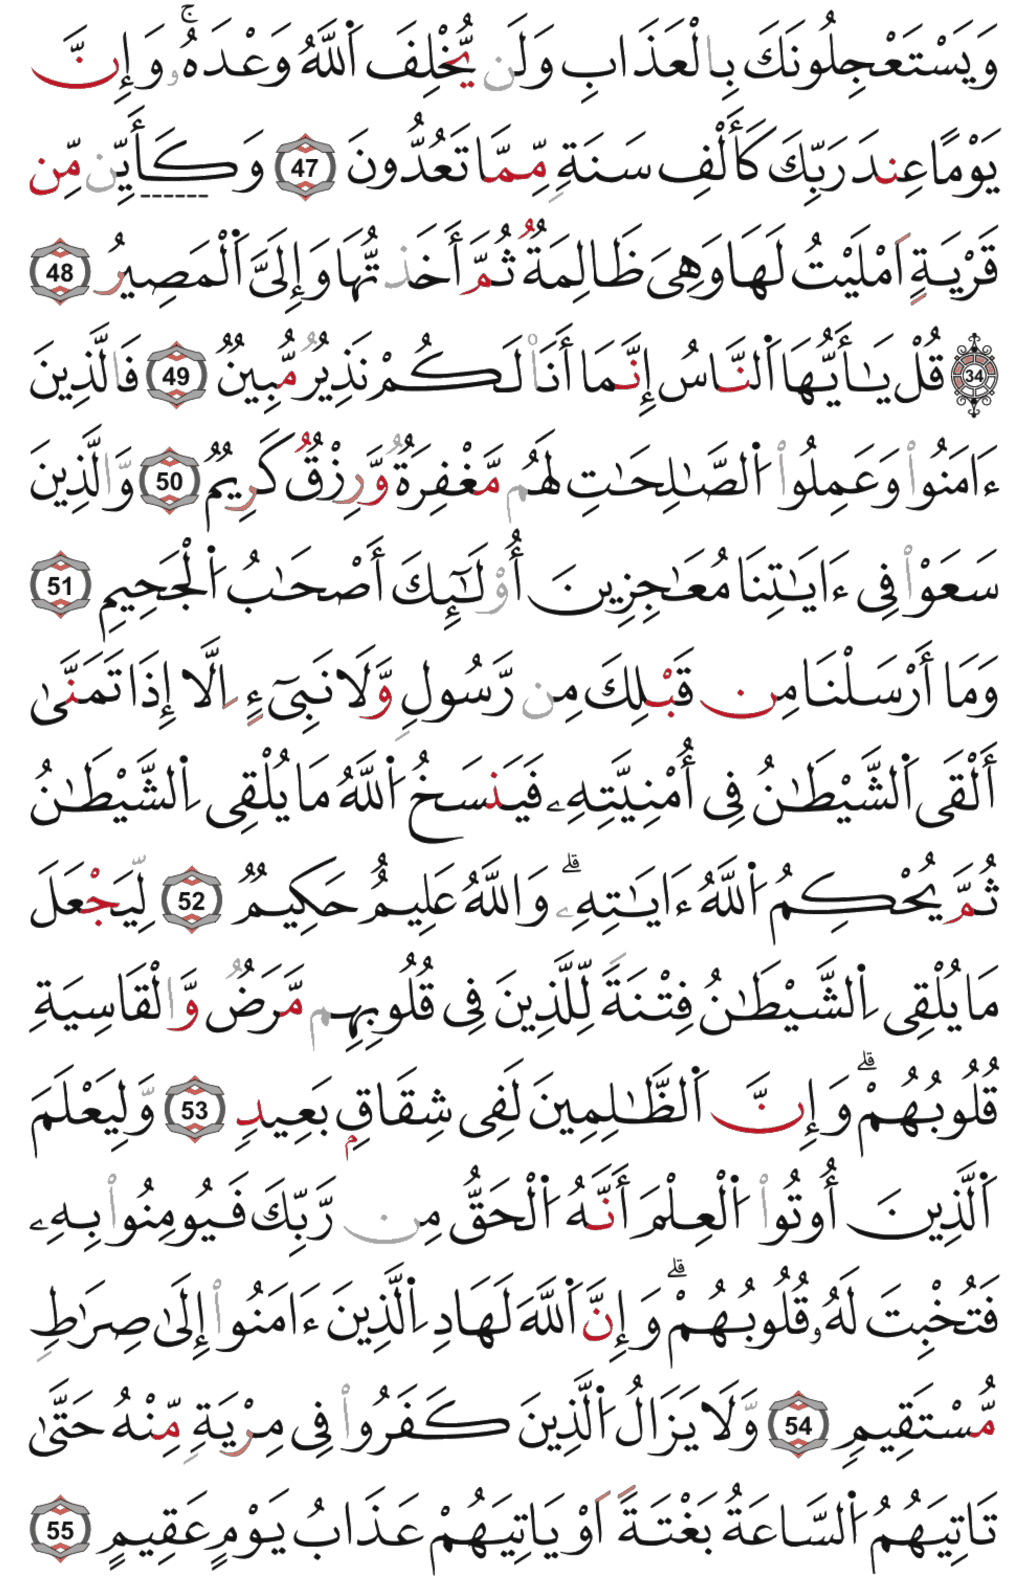 وَيَسْتَعْجِلُونَكَ بِالْعَذَابِ وَلَن يُّخْلِفَ اَ۬للَّهُ وَعْدَهُۥۚ وَإِنَّ
يَوْماً عِندَ رَبِّكَ كَأَلْفِ سَنَةٖ مِّمَّا تَعُدُّونَ 47 وَكَأَيِّن مِّن
قَرْيَةٍ اَمْلَيْتُ لَهَا وَهِيَ ظَالِمَةٞ ثُمَّ أَخَذتُّهَا وَإِلَيَّ اَ۬لْمَصِيرُ 48
34 قُلْ يَٰأَيُّهَا اَ۬لنَّاسُ إِنَّمَا أَنَا۠ لَكُمْ نَذِيرٞ مُّبِينٞ 49 فَالَّذِينَ
ءَامَنُواْ وَعَمِلُواْ اُ۬لصَّٰلِحَٰتِ لَهُم مَّغْفِرَةٞ وَرِزْقٞ كَرِيمٞ 50 وَالَّذِينَ
سَعَوْاْ فِي ءَايَٰتِنَا مُعَٰجِزِينَ أُوْلَٰٓئِكَ أَصْحَٰبُ اُ۬لْجَحِيمِ 51
وَمَا أَرْسَلْنَا مِن قَبْلِكَ مِن رَّسُولٖ وَلَا نَبِيٓءٍ اِلَّا إِذَا تَمَنَّىٰ
أَلْقَى اَ۬لشَّيْطَٰنُ فِي أُمْنِيَّتِهِۦ فَيَنسَخُ اُ۬للَّهُ مَا يُلْقِي اِ۬لشَّيْطَٰنُ
ثُمَّ يُحْكِمُ اُ۬للَّهُ ءَايَٰتِهِۦۗ وَاللَّهُ عَلِيمٌ حَكِيمٞ 52 لِّيَجْعَلَ
مَا يُلْقِي اِ۬لشَّيْطَٰنُ فِتْنَةٗ لِّلَّذِينَ فِي قُلُوبِهِم مَّرَضٞ وَالْقَاسِيَةِ
قُلُوبُهُمْۗ وَإِنَّ اَ۬لظَّٰلِمِينَ لَفِي شِقَاقِۢ بَعِيدٖ 53 وَلِيَعْلَمَ
اَ۬لَّذِينَ أُوتُواْ اُ۬لْعِلْمَ أَنَّهُ اُ۬لْحَقُّ مِن رَّبِّكَ فَيُومِنُواْ بِهِۦ
فَتُخْبِتَ لَهُۥ قُلُوبُهُمْۗ وَإِنَّ اَ۬للَّهَ لَهَادِ اِ۬لَّذِينَ ءَامَنُواْ إِلَىٰ صِرَٰطٖ
مُّسْتَقِيمٖ 54 وَلَا يَزَالُ اُ۬لَّذِينَ كَفَرُواْ فِي مِرْيَةٖ مِّنْهُ حَتَّىٰ
تَاتِيَهُمُ اُ۬لسَّاعَةُ بَغْتَةً اَوْ يَاتِيَهُمْ عَذَابُ يَوْمٍ عَقِيمٍ 55